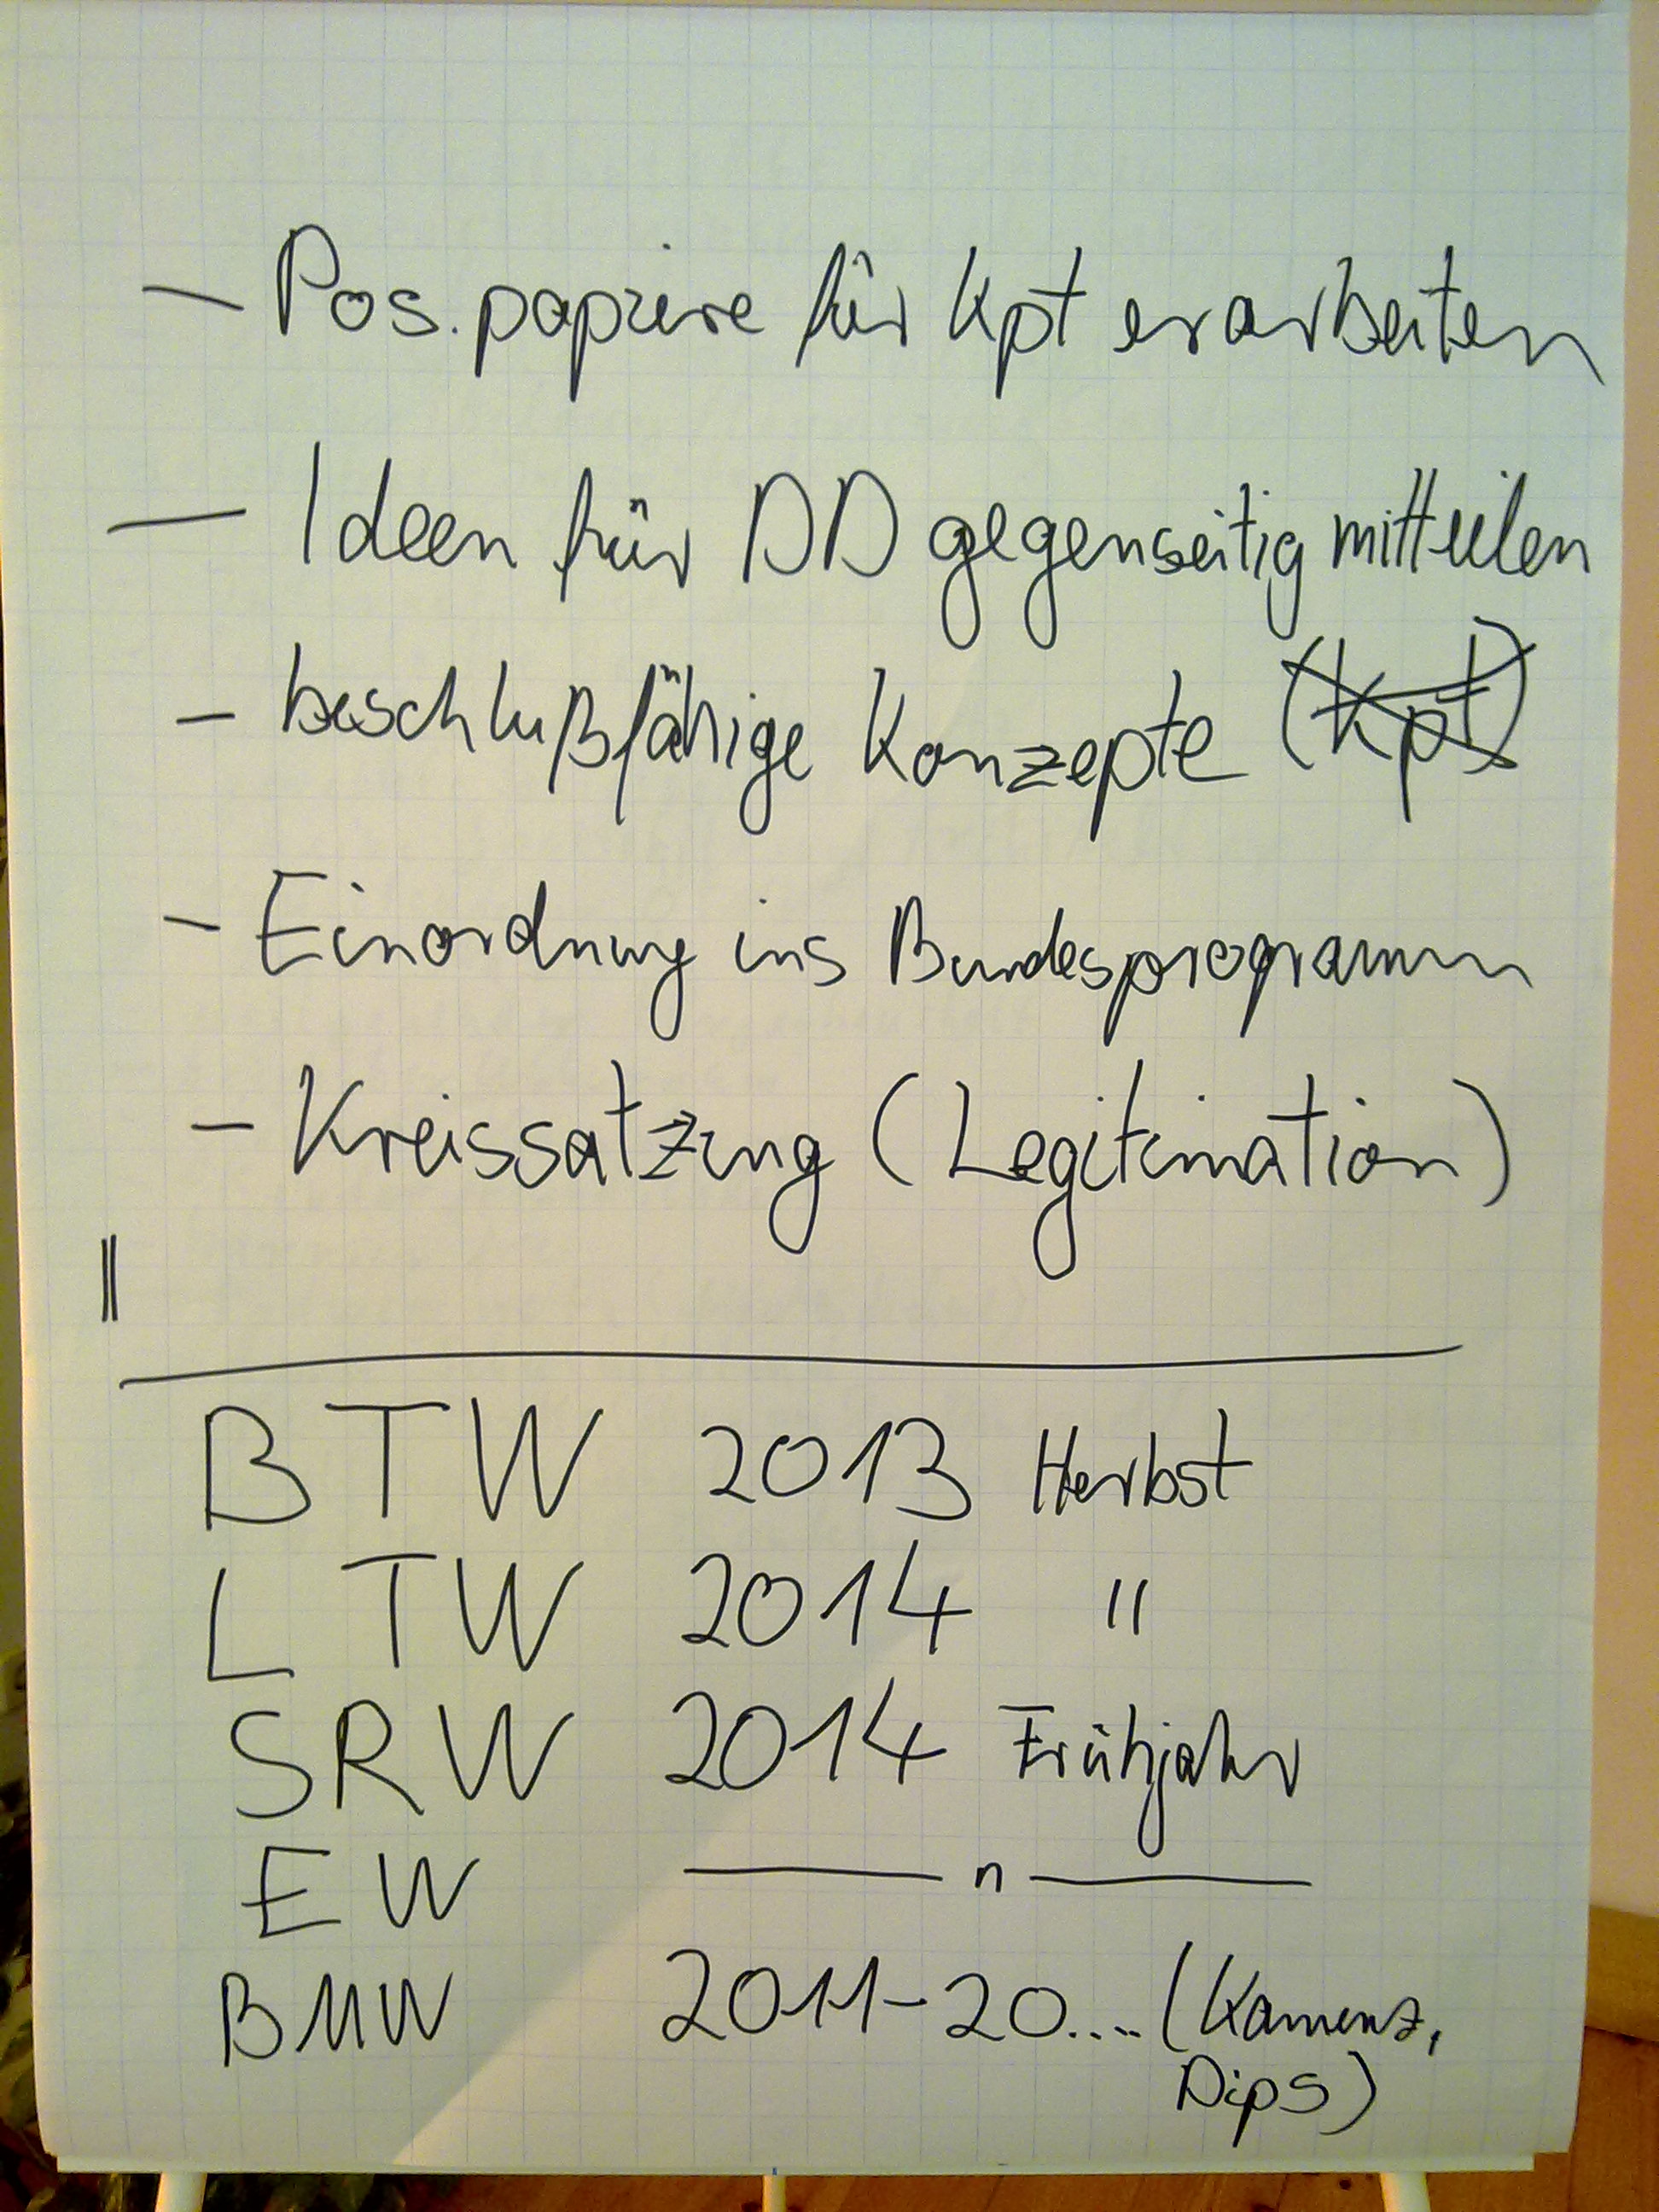 - Pos.papiere für Kpt erarbeiten
- Ideen für DD gegenseitig mitteilen
- beschlußfähige Konzepte (Kpt)
- Einordnung ins Bundesprogramm
- Kreissatzung (Legitimation)
||
BTW 2013 Herbst
LTW 2014 "
SRW 2014 Frühjahr
EW —— " ——
BMW 2011-20.... (Kamenz,
Dips)